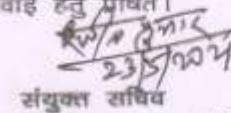 वाई हेतु प्रेषित।
23/5/2024
संयुक्त सचिव